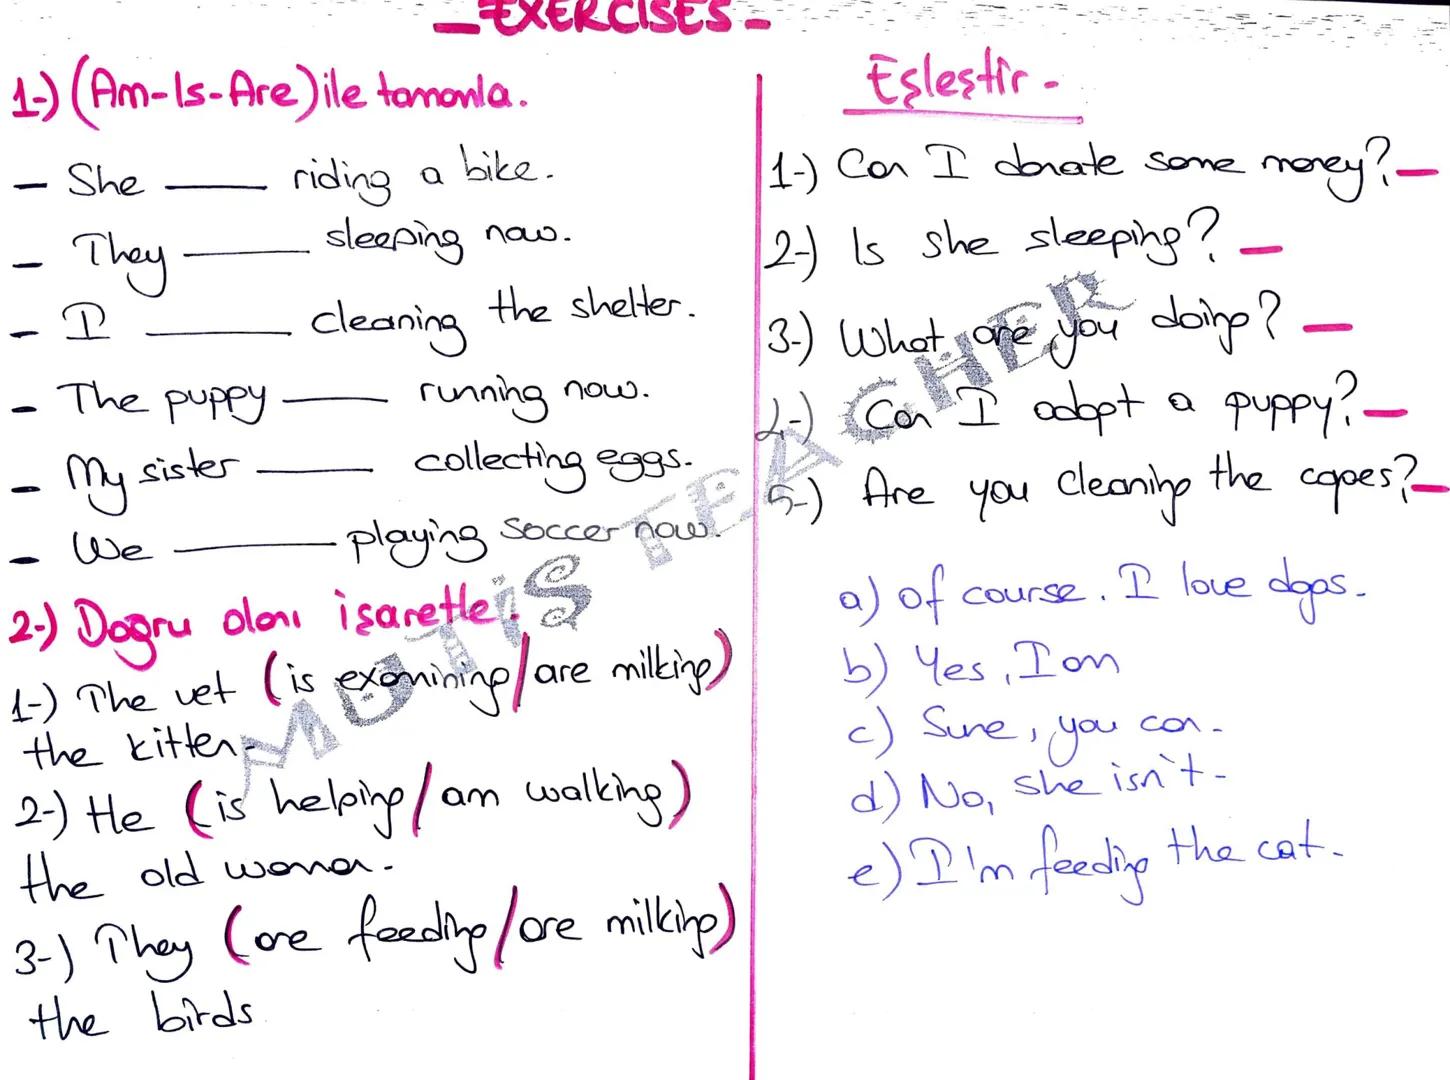 - EXERCISES -
1-) (Am-Is-Are) ile tamamla.
- She ____ riding a bike.
- They ____ sleeping now.
- I ____ cleaning the shelter.
- The puppy ____ running now.
- My sister ____ collecting eggs.
- We ____ playing soccer now.
2-) Doğru olanı işaretle.
1-) The vet (is examining/are milking)
the kitten.
2-) He (is helping/am walking)
the old woman.
3-) They (are feeding/are milking)
the birds
Eşleştir -
1-) Can I donate some money? _
2-) Is she sleeping? _
3-) What are you doing? _
4-) Can I adopt a puppy? _
5-) Are you cleaning the cages? _
a) Of course. I love dogs.
b) Yes, I am
c) Sure, you can.
d) No, she isn't.
e) I'm feeding the cat.
TEACHER